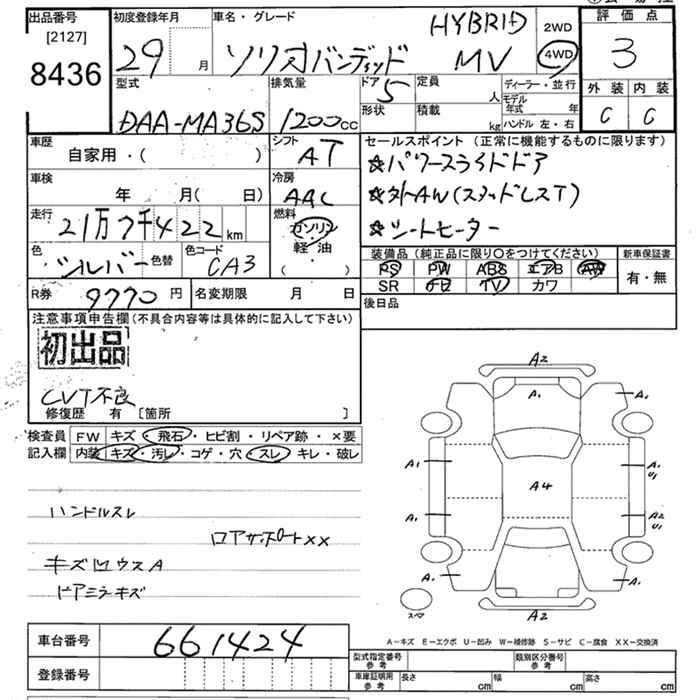 出品番号 初度登録年月 車名・グレード 評価点
[2127]
8436
29 月
ソリオバンディッド
HYBRID
MV
2WD
4WD
3
外装 内装
C C
型式 排気量 ドア 定員 ディーラー・並行
DAA-MA36S 1200cc 5 人
形状 積載 kg
モデル年式 年
ハンドル 左・右
車歴 シフト セールスポイント (正常に機能するものに限ります)
自家用・( ) AT
☆パワースライドドア
車検 冷房
年 月( 日) AAC
☆外AW(スタッドレスT)
走行 燃料
21万7千422km
ガソリン
軽油
( )
☆シートヒーター
色 色替 色コード
シルバー CA3
装備品(純正品に限り〇をつけてください) 新車保証書
PS PW ABS エアB AW
SR ナビ TV カワ
有・無
R券 9770円 名変期限 月 日
後日品
注意事項申告欄(不具合内容等は具体的に記入して下さい)
初出品
CVT不良
修復歴 有 [箇所 ]
検査員 FW キズ・飛石・ヒビ割・リペア跡・×要
記入欄 内装 キズ・汚レ・コゲ・穴・スレ・キレ・破レ
ハンドルスレ
ロアサポートXX
キズ凹ウスA
ドアミラーキズ
A2
A1 A1 A1
A1 A1 U1
A4
A1 A2 U1
A1 A1
スペア
A2
A－キズ E－エクボ U－凹み W－補修跡 S－サビ C－腐食 XX－交換済
車台番号 661424
登録番号
型式指定番号 参考 類別区分番号 参考
車庫証明用 参考 長さ cm 幅 cm 高さ cm